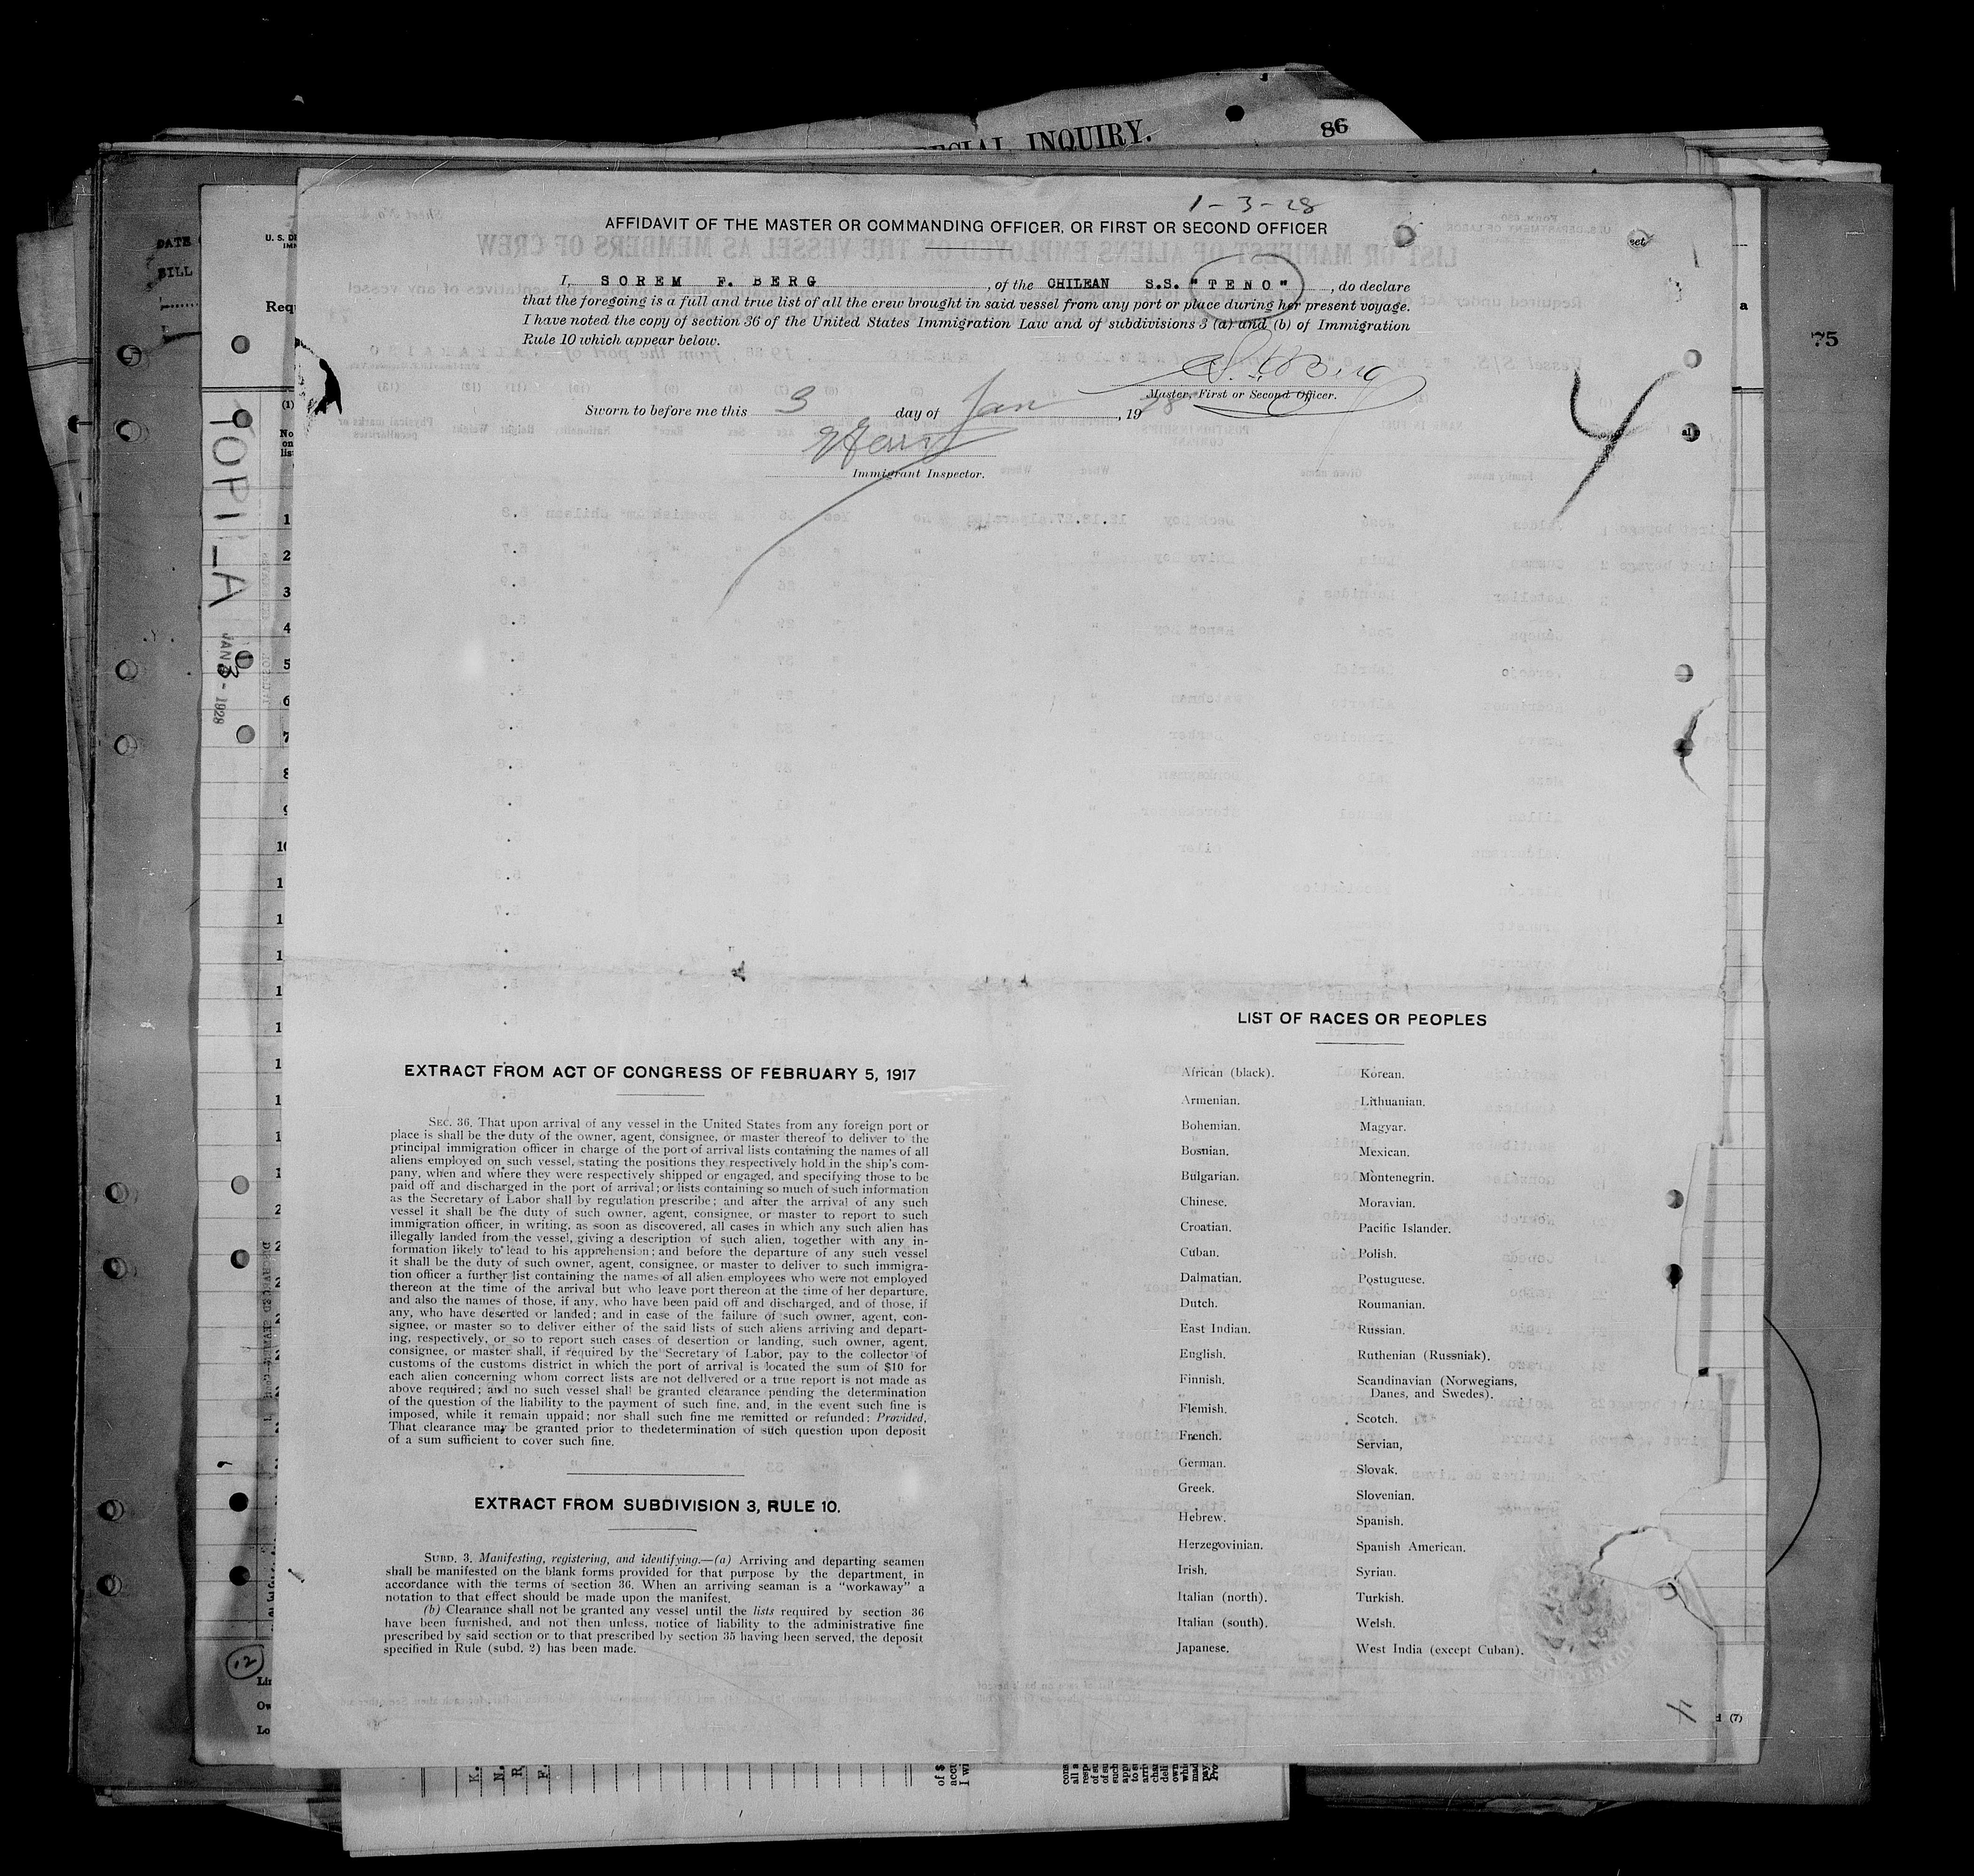 SPECIAL INQUIRY.
86
75
1-3-28
AFFIDAVIT OF THE MASTER OR COMMANDING OFFICER, OR FIRST OR SECOND OFFICER
I, SOREM F. BERG, of the CHILEAN S.S. "TENO", do declare
that the foregoing is a full and true list of all the crew brought in said vessel from any port or place during her present voyage.
I have noted the copy of section 36 of the United States Immigration Law and of subdivisions 3 (a) and (b) of Immigration
Rule 10 which appear below.
S. F. Berg
Master, First or Second Officer.
Sworn to before me this 3 day of Jan, 1928
Immigrant Inspector.
4
TOPILA
JAN 3 - 1928
DATE
BILL
U. S. D
Req
(1)
No
on
lis
1
2
3
4
5
6
7
8
9
10
EXTRACT FROM ACT OF CONGRESS OF FEBRUARY 5, 1917
SEC. 36. That upon arrival of any vessel in the United States from any foreign port or
place is shall be the duty of the owner, agent, consignee, or master thereof to deliver to the
principal immigration officer in charge of the port of arrival lists containing the names of all
aliens employed on such vessel, stating the positions they respectively hold in the ship's com-
pany, when and where they were respectively shipped or engaged, and specifying those to be
paid off and discharged in the port of arrival; or lists containing so much of such information
as the Secretary of Labor shall by regulation prescribe; and after the arrival of any such
vessel it shall be the duty of such owner, agent, consignee, or master to report to such
immigration officer, in writing, as soon as discovered, all cases in which any such alien has
illegally landed from the vessel, giving a description of such alien, together with any in-
formation likely to lead to his apprehension; and before the departure of any such vessel
it shall be the duty of such owner, agent, consignee, or master to deliver to such immigra-
tion officer a further list containing the names of all alien employees who were not employed
thereon at the time of the arrival but who leave port thereon at the time of her departure,
and also the names of those, if any, who have been paid off and discharged, and of those, if
any, who have deserted or landed; and in case of the failure of such owner, agent, con-
signee, or master so to deliver either of the said lists of such aliens arriving and depart-
ing, respectively, or so to report such cases of desertion or landing, such owner, agent,
consignee, or master shall, if required by the Secretary of Labor, pay to the collector of
customs of the customs district in which the port of arrival is located the sum of $10 for
each alien concerning whom correct lists are not delivered or a true report is not made as
above required; and no such vessel shall be granted clearance pending the determination
of the question of the liability to the payment of such fine, and, in the event such fine is
imposed, while it remain uppaid; nor shall such fine me remitted or refunded: Provided,
That clearance may be granted prior to thedetermination of such question upon deposit
of a sum sufficient to cover such fine.
EXTRACT FROM SUBDIVISION 3, RULE 10.
SUBD. 3. Manifesting, registering, and identifying.—(a) Arriving and departing seamen
shall be manifested on the blank forms provided for that purpose by the department, in
accordance with the terms of section 36. When an arriving seaman is a "workaway" a
notation to that effect should be made upon the manifest.
(b) Clearance shall not be granted any vessel until the lists required by section 36
have been furnished, and not then unless, notice of liability to the administrative fine
prescribed by said section or to that prescribed by section 35 having been served, the deposit
specified in Rule (subd. 2) has been made.
LIST OF RACES OR PEOPLES
African (black).
Armenian.
Bohemian.
Bosnian.
Bulgarian.
Chinese.
Croatian.
Cuban.
Dalmatian.
Dutch.
East Indian.
English.
Finnish.
Flemish.
French.
German.
Greek.
Hebrew.
Herzegovinian.
Irish.
Italian (north).
Italian (south).
Japanese.
Korean.
Lithuanian.
Magyar.
Mexican.
Montenegrin.
Moravian.
Pacific Islander.
Polish.
Postuguese.
Roumanian.
Russian.
Ruthenian (Russniak).
Scandinavian (Norwegians,
Danes, and Swedes).
Scotch.
Servian,
Slovak.
Slovenian.
Spanish.
Spanish American.
Syrian.
Turkish.
Welsh.
West India (except Cuban).
12
4
(7)
K.
N.
R.
F.